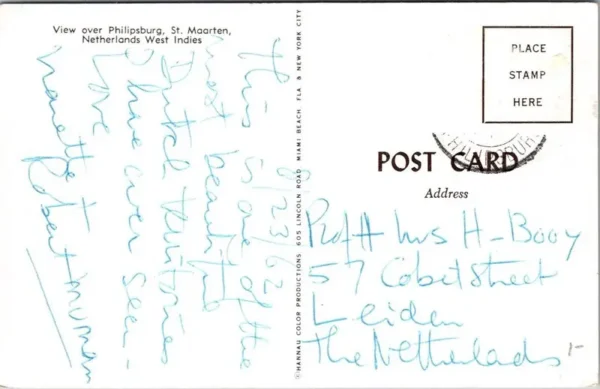 View over Philipsburg, St. Maarten,
Netherlands West Indies
8/23/62
This is one of the
most beautiful
Dutch territories
I have ever seen -
Love
Nanette + Robert Truman
©HANNAU COLOR PRODUCTIONS 605 LINCOLN ROAD MIAMI BEACH, FLA. & NEW YORK CITY
PLACE
STAMP
HERE
POST CARD
Address
Prof + Mrs H - Booy
57 Cobetstreet
Leiden
The Netherlands